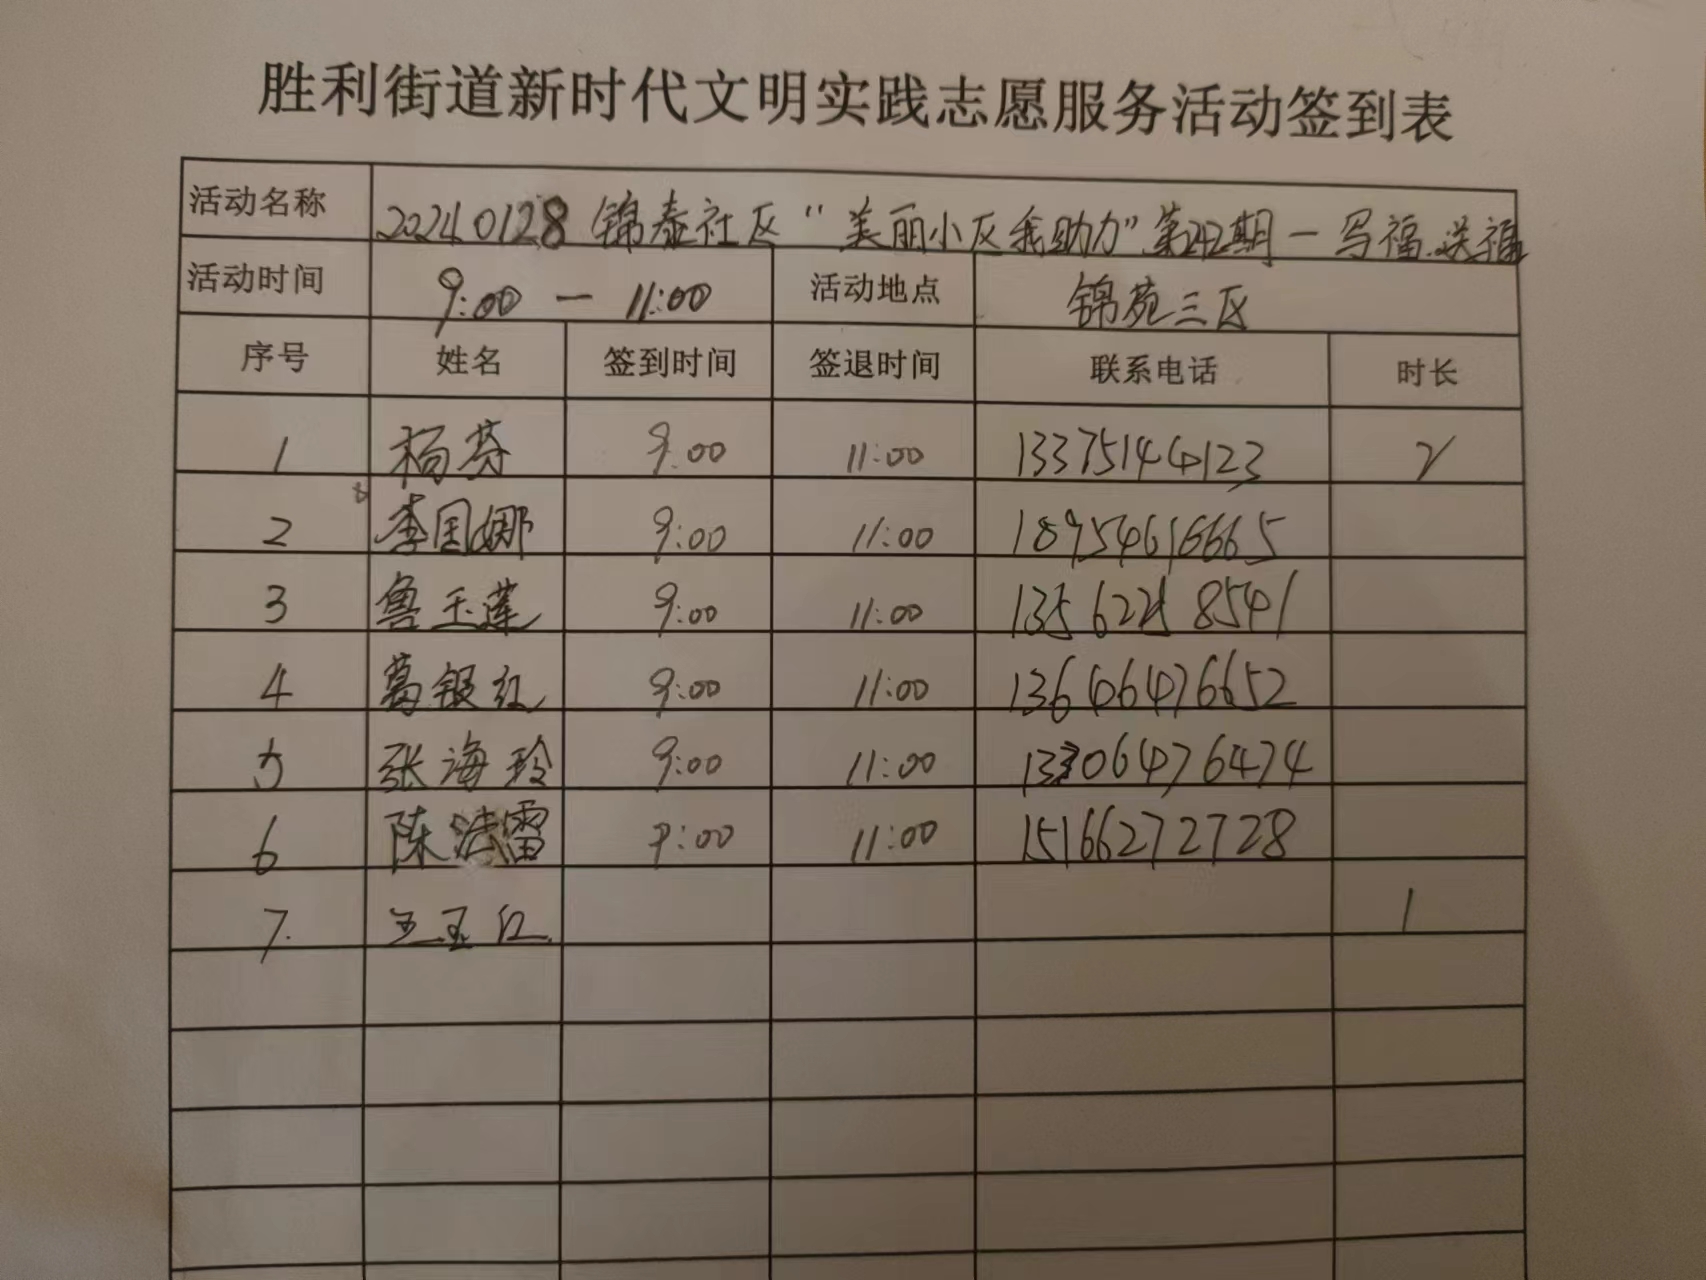 胜利街道新时代文明实践志愿服务活动签到表
活动名称 20240128 锦泰社区“美丽小区我助力”第242期—写福.送福
活动时间 9:00 — 11:00 活动地点 锦苑三区
序号 姓名 签到时间 签退时间 联系电话 时长
1 杨芬 9:00 11:00 13375144123 2
2 李国娜 9:00 11:00 18954616665
3 鲁玉莲 9:00 11:00
4 葛银红 9:00 11:00 13646476652
5 张海玲 9:00 11:00 13306476474
6 陈洁雷 9:00 11:00 15166272728
7. 王玉红 1